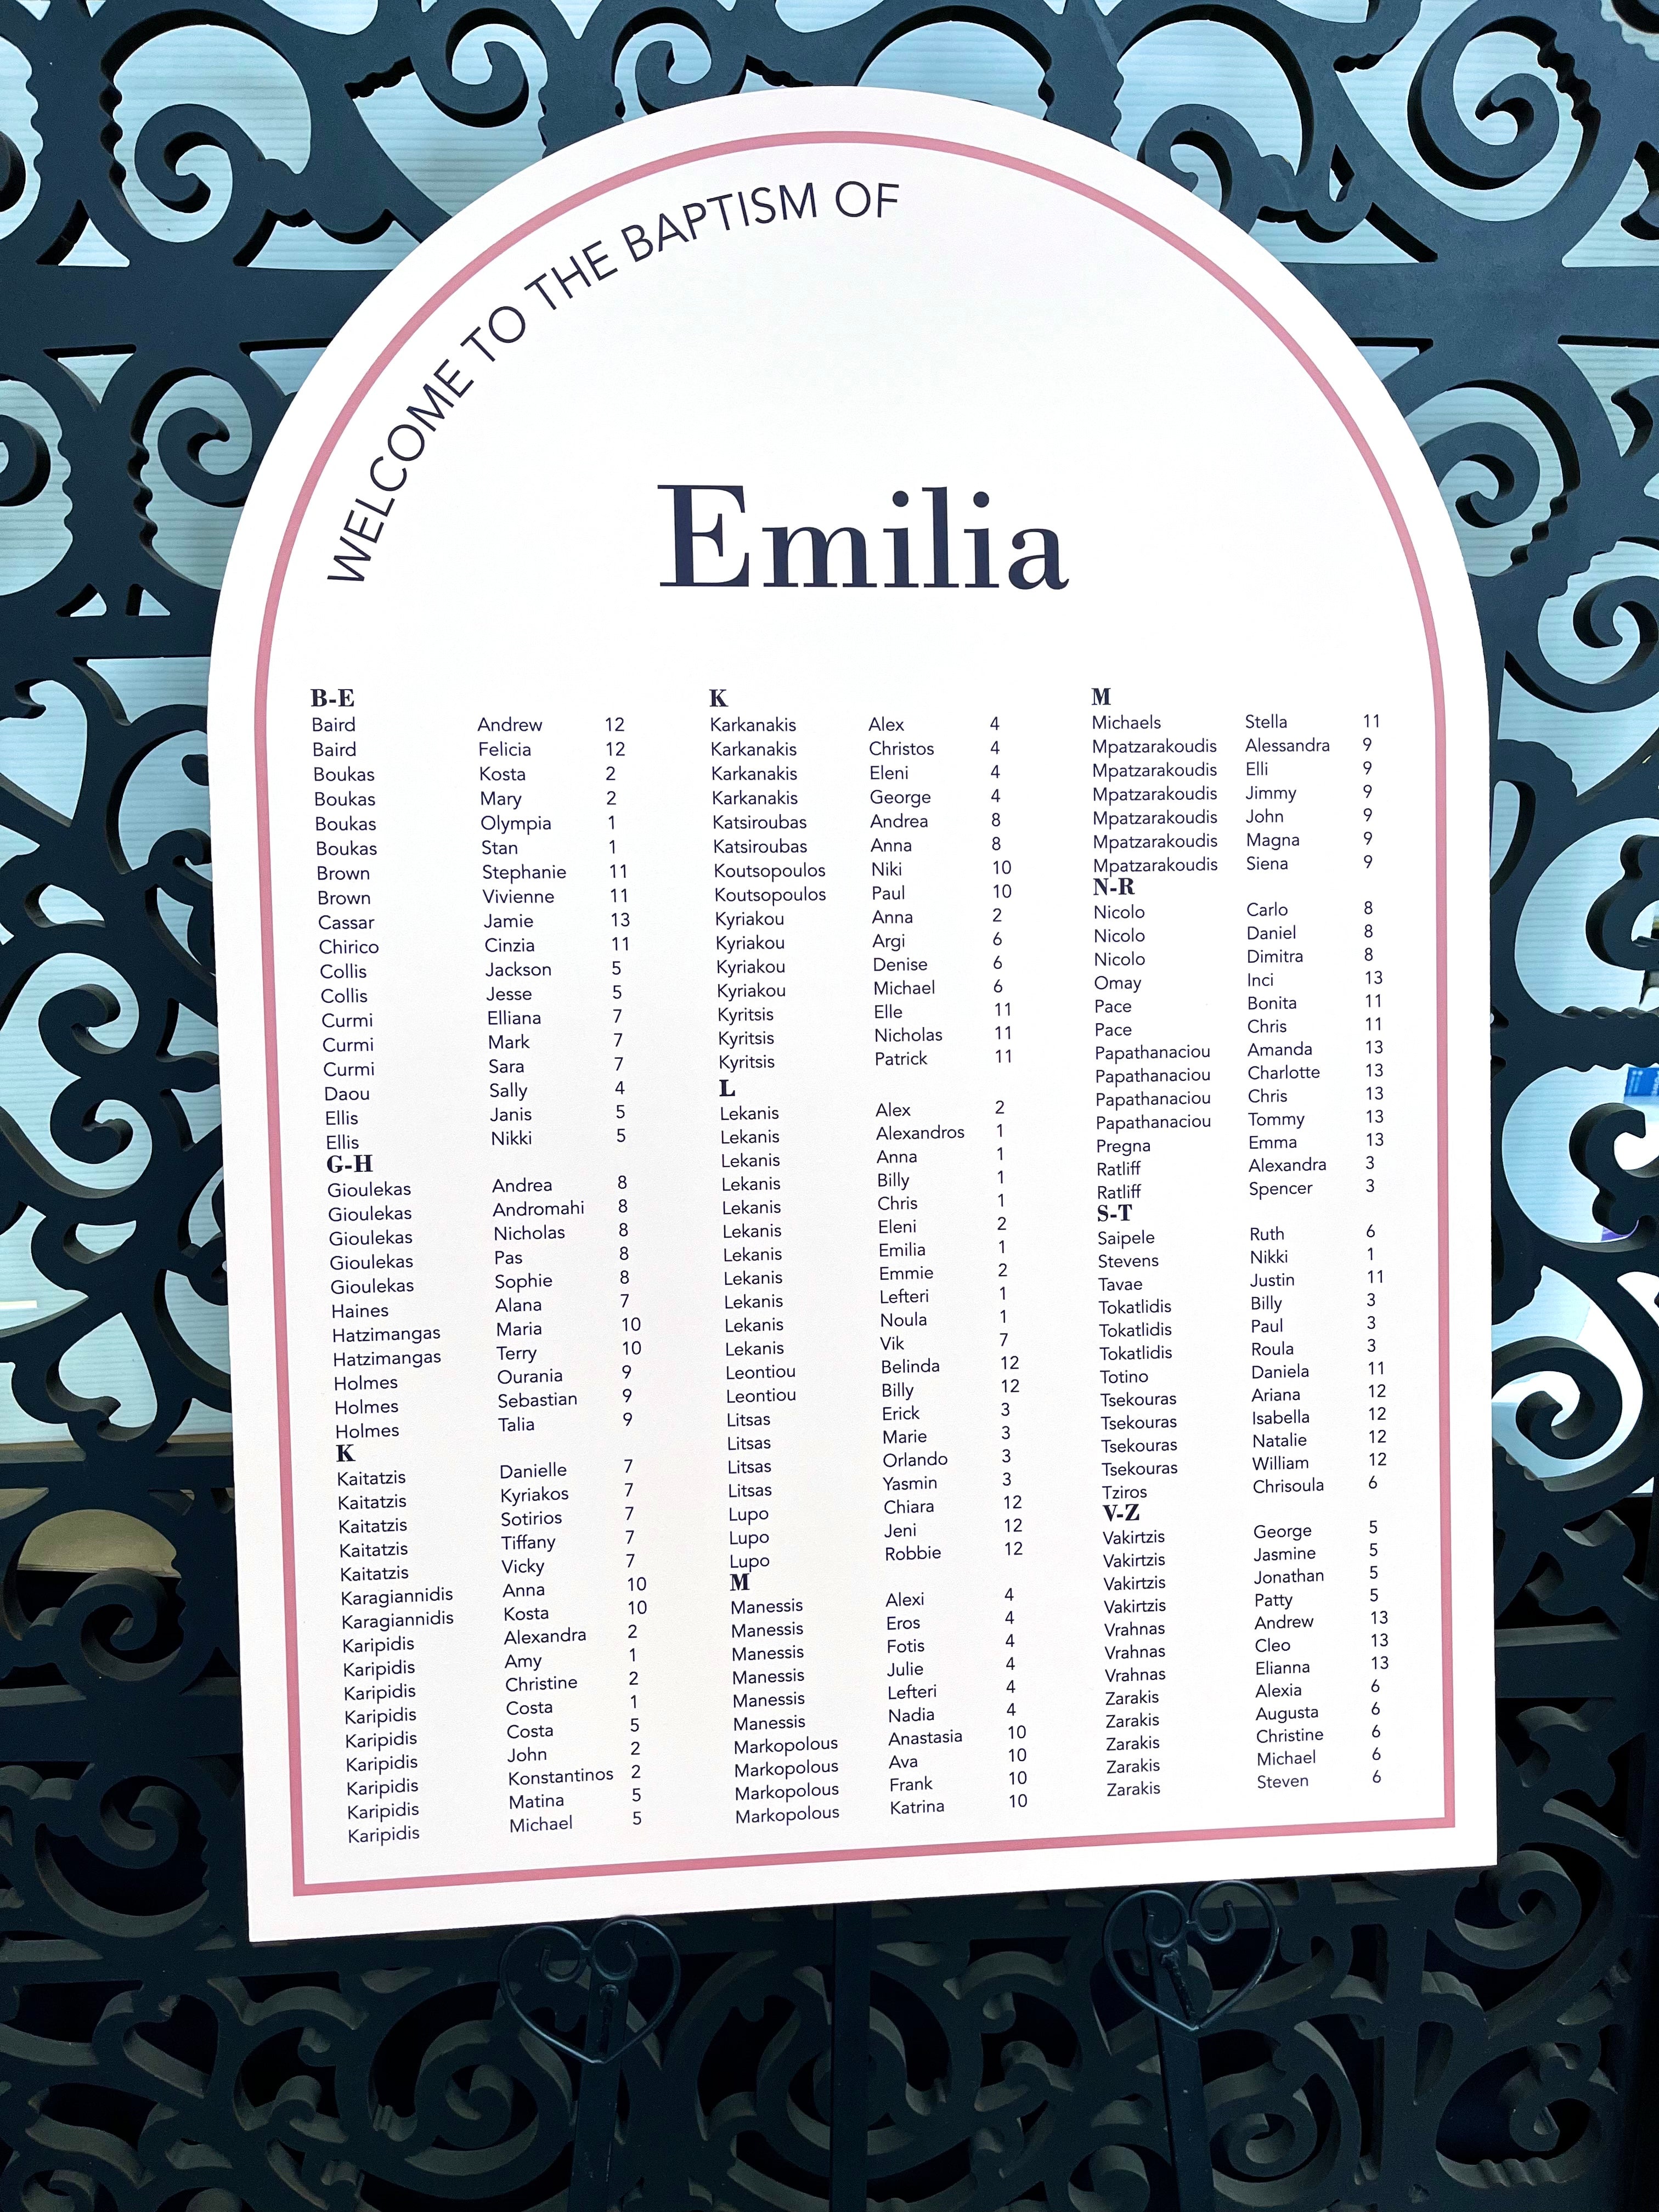 WELCOME TO THE BAPTISM OF
Emilia
B-E
Baird Andrew 12
Baird Felicia 12
Boukas Kosta 2
Boukas Mary 2
Boukas Olympia 1
Boukas Stan 1
Brown Stephanie 11
Brown Vivienne 11
Cassar Jamie 13
Chirico Cinzia 11
Collis Jackson 5
Collis Jesse 5
Curmi Elliana 7
Curmi Mark 7
Curmi Sara 7
Daou Sally 4
Ellis Janis 5
Ellis Nikki 5
G-H
Gioulekas Andrea 8
Gioulekas Andromahi 8
Gioulekas Nicholas 8
Gioulekas Pas 8
Gioulekas Sophie 8
Haines Alana 7
Hatzimangas Maria 10
Hatzimangas Terry 10
Holmes Ourania 9
Holmes Sebastian 9
Holmes Talia 9
K
Kaitatzis Danielle 7
Kaitatzis Kyriakos 7
Kaitatzis Sotirios 7
Kaitatzis Tiffany 7
Kaitatzis Vicky 7
Karagiannidis Anna 10
Karagiannidis Kosta 10
Karipidis Alexandra 2
Karipidis Amy 1
Karipidis Christine 2
Karipidis Costa 1
Karipidis Costa 5
Karipidis John 2
Karipidis Konstantinos 2
Karipidis Matina 5
Karipidis Michael 5
K
Karkanakis Alex 4
Karkanakis Christos 4
Karkanakis Eleni 4
Karkanakis George 4
Katsiroubas Andrea 8
Katsiroubas Anna 8
Koutsopoulos Niki 10
Koutsopoulos Paul 10
Kyriakou Anna 2
Kyriakou Argi 6
Kyriakou Denise 6
Kyriakou Michael 6
Kyritsis Elle 11
Kyritsis Nicholas 11
Kyritsis Patrick 11
L
Lekanis Alex 2
Lekanis Alexandros 1
Lekanis Anna 1
Lekanis Billy 1
Lekanis Chris 1
Lekanis Eleni 2
Lekanis Emilia 1
Lekanis Emmie 2
Lekanis Lefteri 1
Lekanis Noula 1
Lekanis Vik 7
Leontiou Belinda 12
Leontiou Billy 12
Litsas Erick 3
Litsas Marie 3
Litsas Orlando 3
Litsas Yasmin 3
Lupo Chiara 12
Lupo Jeni 12
Lupo Robbie 12
M
Manessis Alexi 4
Manessis Eros 4
Manessis Fotis 4
Manessis Julie 4
Manessis Lefteri 4
Manessis Nadia 4
Markopolous Anastasia 10
Markopolous Ava 10
Markopolous Frank 10
Markopolous Katrina 10
M
Michaels Stella 11
Mpatzarakoudis Alessandra 9
Mpatzarakoudis Elli 9
Mpatzarakoudis Jimmy 9
Mpatzarakoudis John 9
Mpatzarakoudis Magna 9
Mpatzarakoudis Siena 9
N-R
Nicolo Carlo 8
Nicolo Daniel 8
Nicolo Dimitra 8
Omay Inci 13
Pace Bonita 11
Pace Chris 11
Papathanaciou Amanda 13
Papathanaciou Charlotte 13
Papathanaciou Chris 13
Papathanaciou Tommy 13
Pregna Emma 13
Ratliff Alexandra 3
Ratliff Spencer 3
S-T
Saipele Ruth 6
Stevens Nikki 1
Tavae Justin 11
Tokatlidis Billy 3
Tokatlidis Paul 3
Tokatlidis Roula 3
Totino Daniela 11
Tsekouras Ariana 12
Tsekouras Isabella 12
Tsekouras Natalie 12
Tsekouras William 12
Tziros Chrisoula 6
V-Z
Vakirtzis George 5
Vakirtzis Jasmine 5
Vakirtzis Jonathan 5
Vakirtzis Patty 5
Vrahnas Andrew 13
Vrahnas Cleo 13
Vrahnas Elianna 13
Zarakis Alexia 6
Zarakis Augusta 6
Zarakis Christine 6
Zarakis Michael 6
Zarakis Steven 6